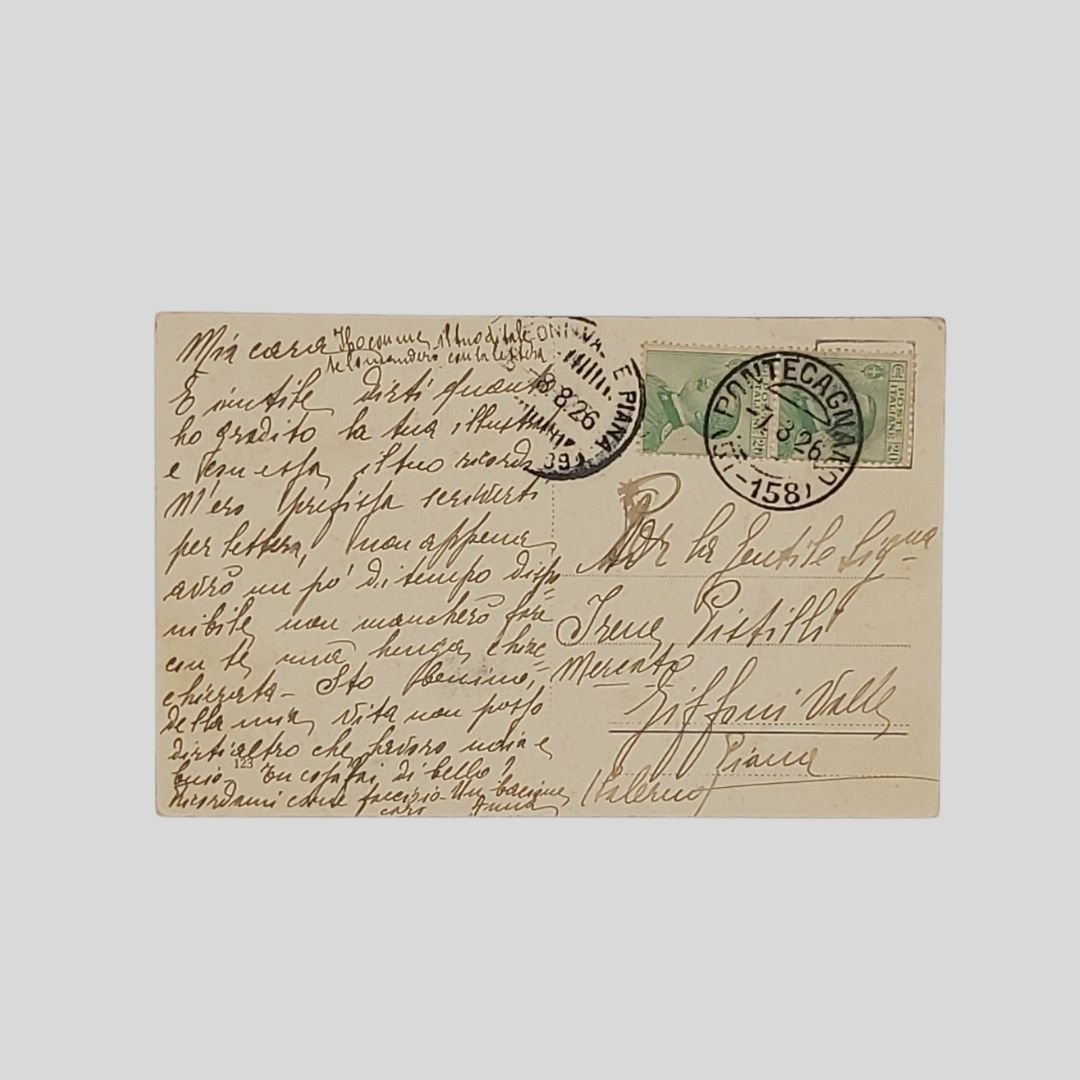 Mia cara
Ho con me il tuo ditale
te lo manderò con la lettera
È inutile dirti quanto
ho gradito la tua illustr
e con essa il tuo ricordo
M'ero prefissa scriverti
per lettera, non appena
avrò un po' di tempo dispo-
nibile non mancherò fare
con te una lunga chiac-
chierata - Sto benino,
della mia vita non posso
dirti altro che lavoro noia e
buio Tu cosa fai di bello?
Ricordami come faccio io - Un bacione
caro Anna
123
GIFFONI VALLE PIANA
8.8.26
PONTECAGNANO
7 8 26
-158)
POSTE
ITALIANE
20
POSTE
ITALIANE
20
Per la Gentile Signa
Irene Pistilli
Mercato
Giffoni Valle
Piana
(Salerno)